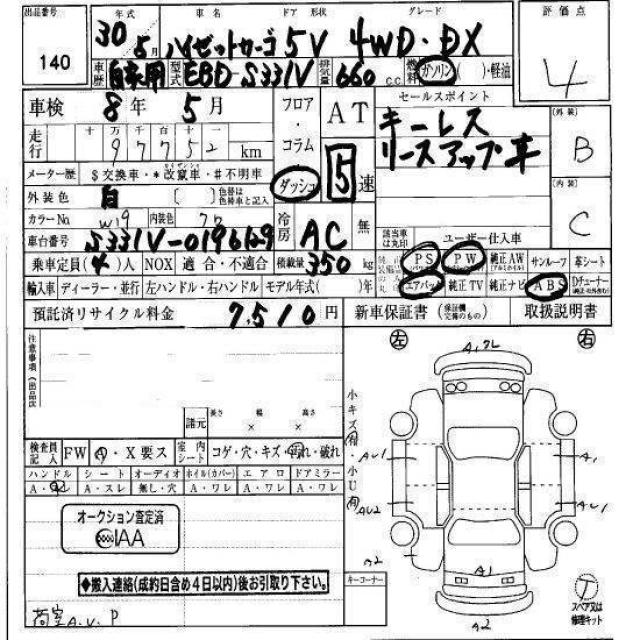 出品番号 140
年式 30年5月
車名 ハイゼットカーゴ
ドア 形状 5V
グレード 4WD・DX
評価点 4
車歴 自家用
型式 EBD-S331V
排気量 660 cc
ガソリン( )・軽油
車検 8年 5月
走行 十万千百十一 97752 km
メーター歴 $交換車・*改竄車・#不明車
外装色 白 ( ) 色替は色替車と記入
カラーNo. W19 内装色
車台番号 S331V-0196129
フロア・コラム ダッシュ
AT 5速
冷房 AC 無
セールスポイント
キーレス
リースアップ車
外装 B
内装 C
該当車は丸印 ユーザー仕入車
PS PW 純正AW サンルーフ 革シート
エアバッグ 純正TV 純正ナビ ABS Dチューナー
乗車定員(4)人 NOX 適合・不適合 積載量 350 kg
輸入車 ディーラー・並行 左ハンドル・右ハンドル モデル年式( )年
預託済リサイクル料金 7,510円
新車保証書(保証機交換のもの) 取扱説明書
注意事項(出品店
諸元 長さ × 幅 × 高さ
検査員記入 FW A・X要ス 室内シート コゲ・穴・キズ・汚れ・破れ
ハンドル シート オーディオ ホイル(カバー) エアロ ドアミラー
A・スレ A・スレ 無し・穴 A・ワレ A・ワレ A・ワレ
オークション査定済
IAA
◆搬入連絡(成約日含め4日以内)後お引取り下さい。
荷室A.U.P
小キズ有
小U有
キーコーナー
左 右
A1 ワレ
AU1 A1
AU2 AU1
A2 A1
A2
T
スペア又は修理キット